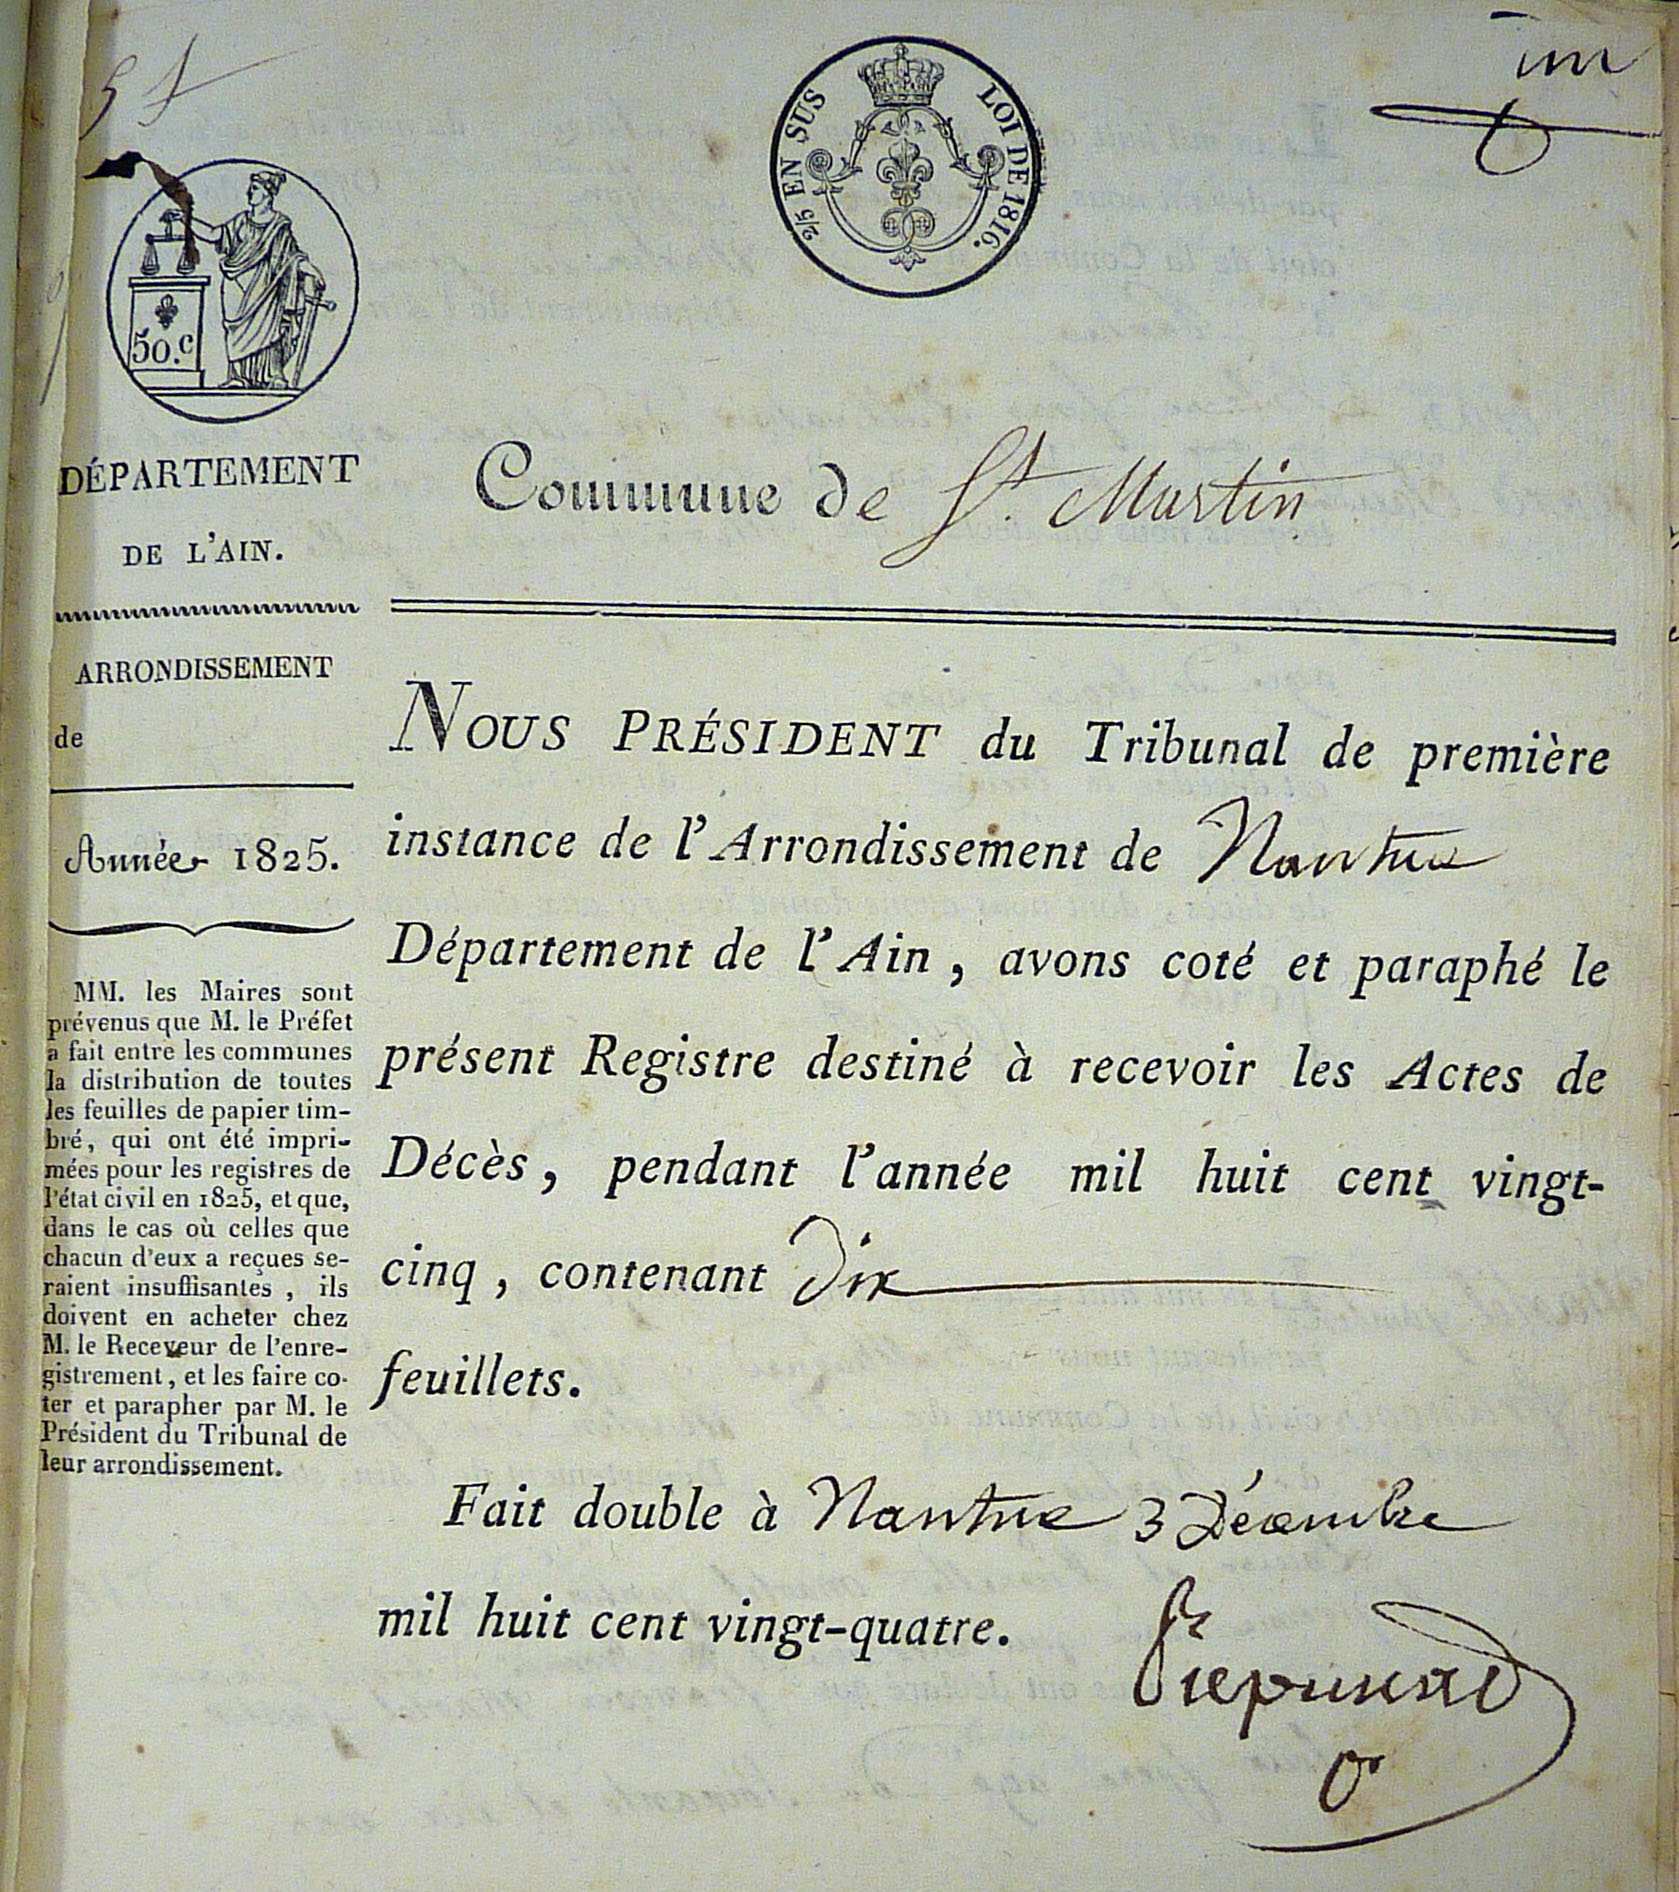 2/5 EN SUS
LOI DE 1816.
50.c
DÉPARTEMENT
DE L'AIN.
ARRONDISSEMENT
de
Année 1825.
MM. les Maires sont
prévenus que M. le Préfet
a fait entre les communes
la distribution de toutes
les feuilles de papier tim-
bré, qui ont été impri-
mées pour les registres de
l'état civil en 1825, et que,
dans le cas où celles que
chacun d'eux a reçues se-
raient insuffisantes, ils
doivent en acheter chez
M. le Receveur de l'enre-
gistrement, et les faire co-
ter et parapher par M. le
Président du Tribunal de
leur arrondissement.
Commune de St. Martin
NOUS PRÉSIDENT du Tribunal de première
instance de l'Arrondissement de Nantua
Département de l'Ain, avons coté et paraphé le
présent Registre destiné à recevoir les Actes de
Décès, pendant l'année mil huit cent vingt-
cinq, contenant Dix
feuillets.
Fait double à Nantua 3 Décembre
mil huit cent vingt-quatre.